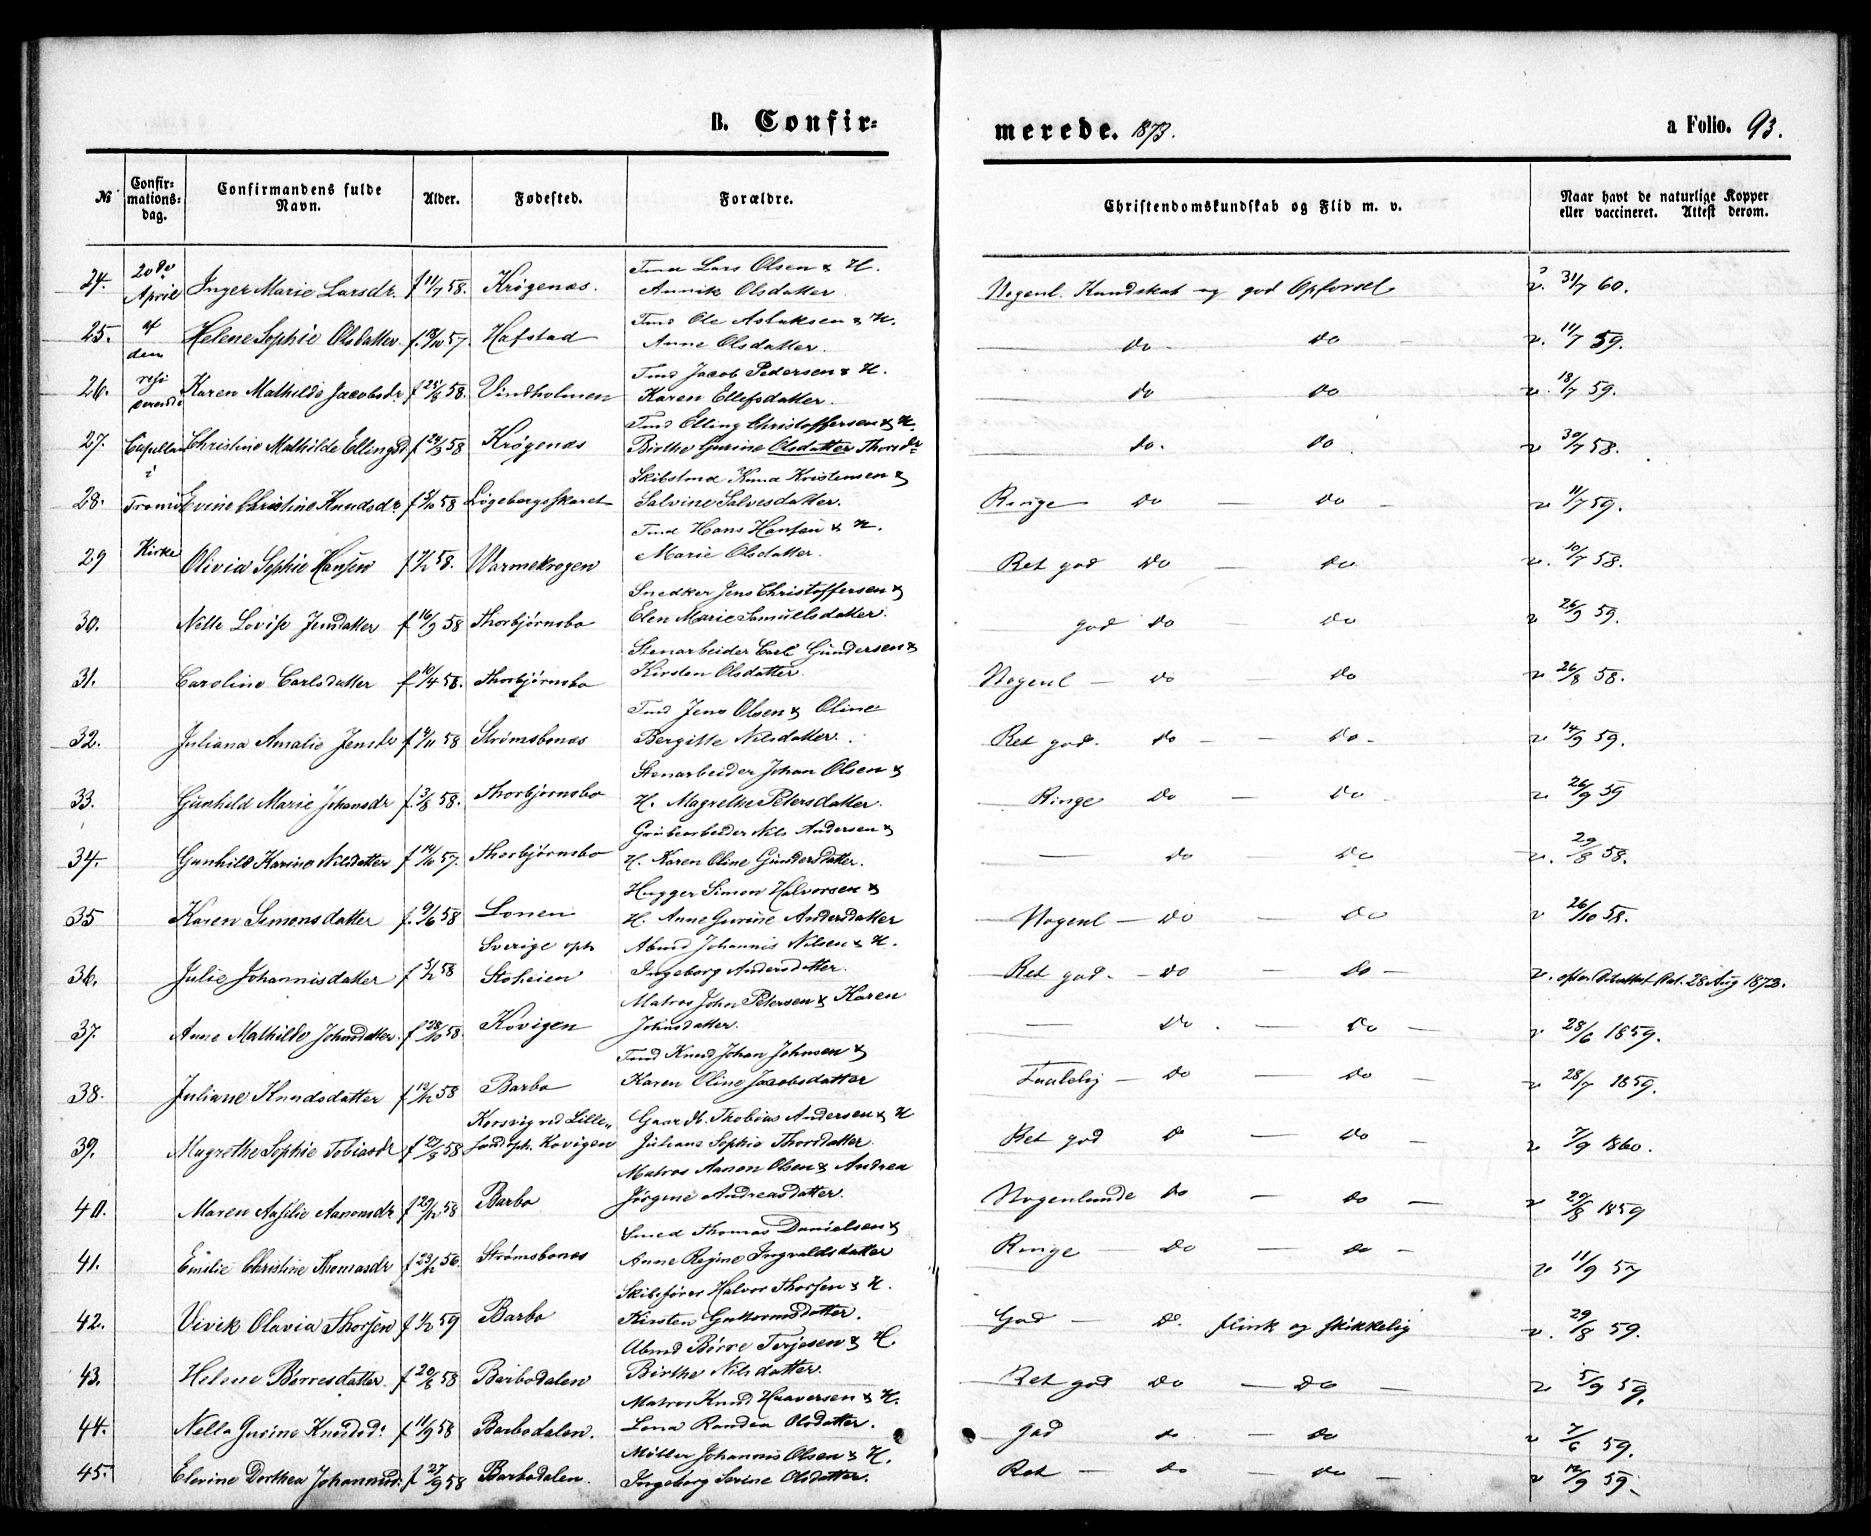 B. Confir-
merede. 1873.
a Folio. 93.
№ Confirmationsdag. Confirmandens fulde Navn. Alder. Fødested. Forældre. Christendomskundskab og Flid m. v. Naar havt de naturlige Kopper eller vaccineret. Attest derom.
20de April af dem resi Capellan i Tromø Kirke
24. Inger Marie Larsdr. f 11/7 58. Krøgenæs. Tmd Lars Olsen & H. Annik Olsdatter Nogenl. Kundskab og god Opførsel v. 31/7 60.
25. Helene Sophie Olsdatter f. 57. Hafstad Tmd Ole Aslaksen & H. Anne Olsdatter. do do v. 11/7 59.
26. Karen Mathilde Jacobsdr f 58. Vindholmen Tmd Jacob Pedersen & H. Karen Ellefsdatter. do do v. 18/7 59.
27. Christine Mathilde Ellingsd f 58 Krøgenæs Tmd Elling Christoffersen & H. Birthe Gurine Olsdatter Thorsdr do. do v 30/7 58.
28. Evine Christine Knudsdr f 58 Løgebergsskaret Skibstmd Knud Kristensen & Salvine Salvesdatter. Ringe do do v 11/7 59.
29 Olivia Sophie Hansen f 58. Warmekrogen Tmd Hans Hansen & H. Marie Olsdatter. Ret god do do v. 10/7 58.
30. Nelle Lovise Jensdatter f 16/9 58 Thorbjørnsbo Snedker Jens Christoffersen & Elen Marie Samuelsdatter. god do do v 26/9 59.
31. Caroline Carlsdatter f 10/4 58. Thorbjørnsbo Stenarbeider Carl Gundersen & Kirsten Olsdatter. Nogenl do do v 26/8 58.
32. Juliana Amalie Jensdr f 58 Strømsbonæs Tmd Jens Olsen & Oline Bergitte Nilsdatter. Ret god. do do v 14/9 59.
33. Gunhild Marie Johansdr f. 3/8 58. Thorbjørnsbo Stenarbeider Johan Olsen & H. Magrethe Petersdatter. Ringe do do v 26/9 59
34. Gunhild Karine Nilsdatter f 14/10 57. Thorbjørnsbo Grubearbeider Nils Andersen & H. Karen Oline Gundersdatter. do do v. 29/8 58.
35 Karen Simonsdatter f. 9/6 58 Lonen Hugger Simon Halvorsen & H. Anne Gurine Andersdatter Nogenl do do v 26/10 58.
36. Julie Johannisdatter f 5/12 58 Sverige oph Stoheien Abmd Johannis Nilsen & H. Ingeborg Andersdatter. Ret god. do do v. 28 Aug 1872.
37. Anne Mathilde Johnsdatter. f 28/10 58. Kovigen Matros John Petersen & Karen Johnsdatter. do do v 28/6 1859.
38. Juliane Knudsdatter f 12/12 58 Barbo Tmd Knud Johan Johnsen & Karen Oline Jacobsdatter Taalelig do do v 28/7 1859.
39. Magrethe Sophie Tobiasdr f 58 Korsvig ved Lillesand oph. Kovigen Gaardb. Thobias Andersen & H Juliane Sophie Thorsdatter. Ret god do do v 7/9 1860.
40. Maren Aasilie Aanonsdr f 29/12 58 Barbo Matros Aanon Olsen & Andrea Jørgine Andreasdatter. Nogenlunde do do v 29/8 1859
41. Emilie Christine Thomasdr f 23/12 56. Strømsbonæs Smed Thomas Danielsen & Anne Regine Ingvaldsdatter Ringe do do v 11/9 57
42. Vivik Olavia Thorsen f 1/2 59 Barbo Skibsfører Halvor Thorsen & H. Kirsten Guttormsdatter. God do. flink og skikkelig v. 29/8 59.
43. Helene Børresdatter. f 20/8 58 Barbodalen Abmd Børre Terjesen & H Birthe Nilsdatter. Ret god do do v 5/9 59.
44. Nella Gurine Knudsd: f 11/9 58 Barbodalen. Matros Knud Haaversen & H. Lena Randea Olsdatter. god do do v 7/6 59.
45. Elevine Dorthea Johannisd: f 27/9 58 Barbodalen. Møller Johannis Olsen & H. Ingeborg Serine Olsdatter. Ret do do v 12/9 59.